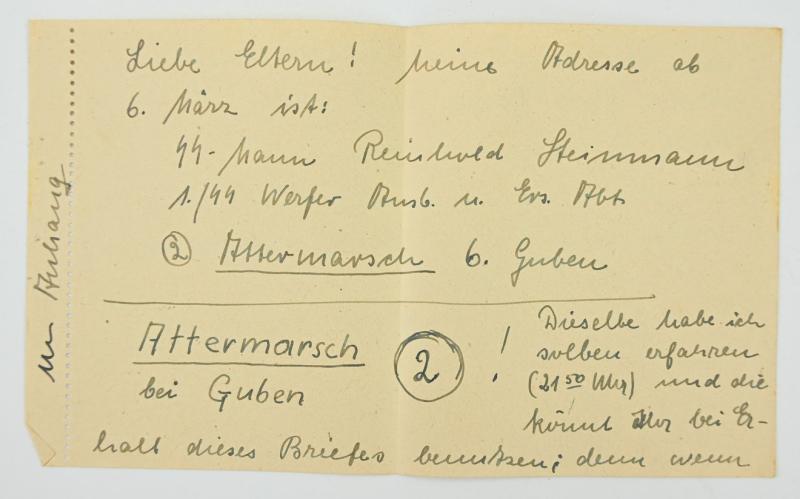 Liebe Eltern! Meine Adresse ab
6. März ist:
SS-Mann Reinhold Steinmann
1./SS Werfer Ausb. u. Ers. Abt.
② Attermarsch b. Guben
Attermarsch ② !
bei Guben
Dieselbe habe ich
soeben erfahren
(21⁵⁰ Uhr) und die
könnt Ihr bei Er-
halt dieses Briefes benutzen; denn wenn
Anhang